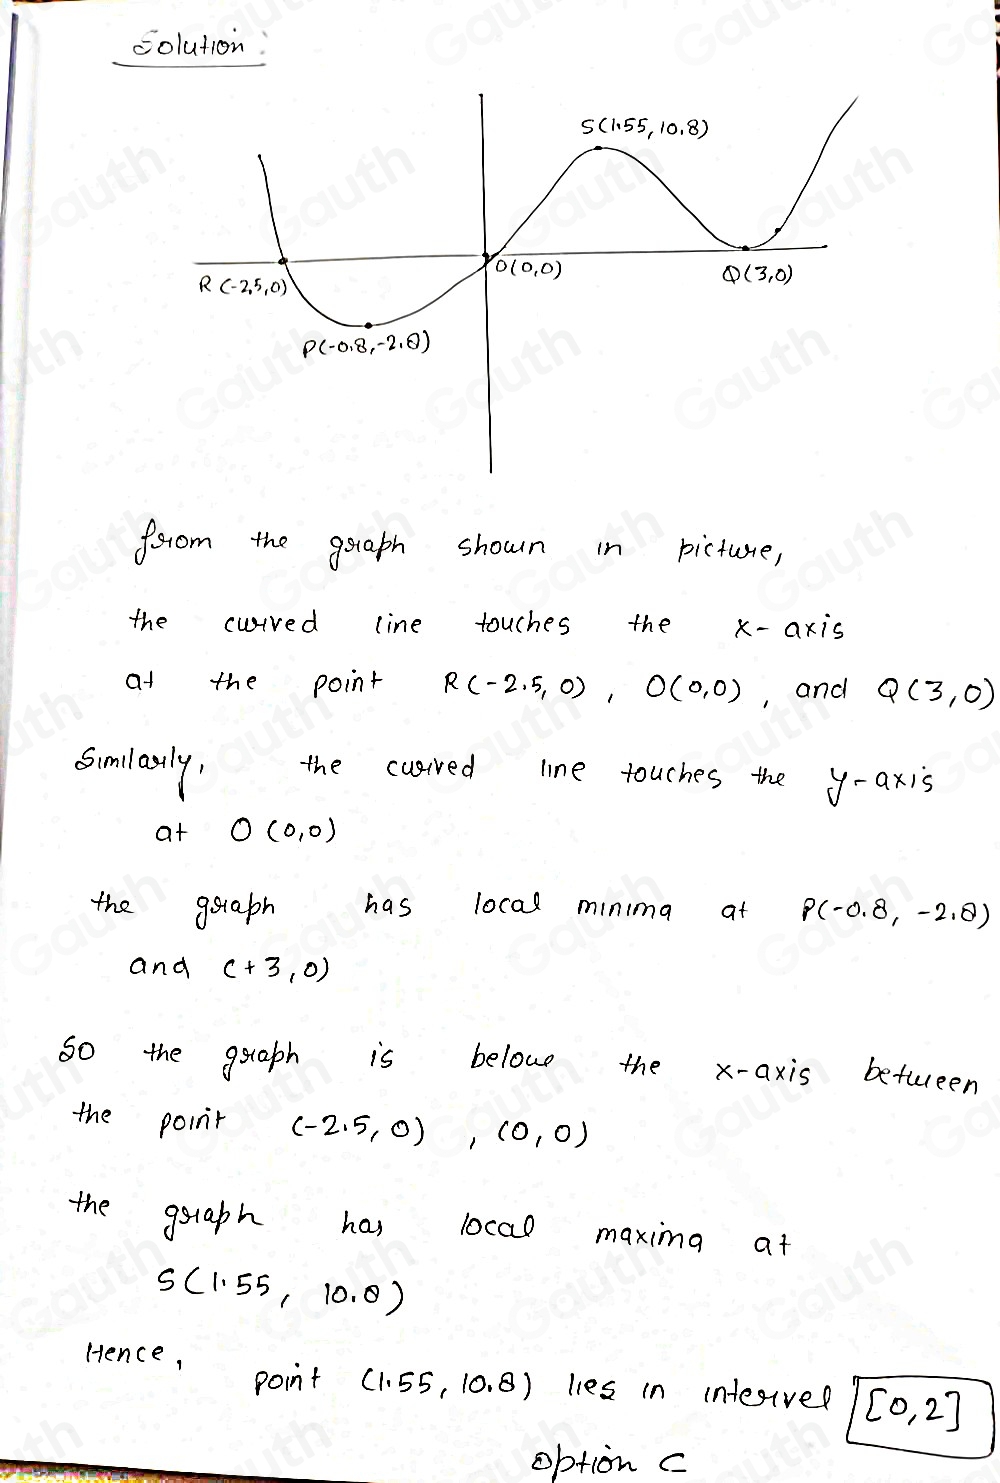 Solution :
S(1.55, 10.8)
O(0,0)
Q(3,0)
R(-2.5,0)
P(-0.8,-2.8)
from the graph shown in picture,
the curved line touches the x-axis
at the point R(-2.5, 0), O(0,0), and Q(3,0)
Similarly, the curved line touches the y-axis
at O(0,0)
the graph has local minima at P(-0.8, -2.8)
and (+3,0)
So the graph is belowe the x-axis between
the point (-2.5, 0), (0,0)
the graph has local maxima at
S(1.55, 10.8)
Hence,
point (1.55, 10.8) lies in intervel [0,2]
option C